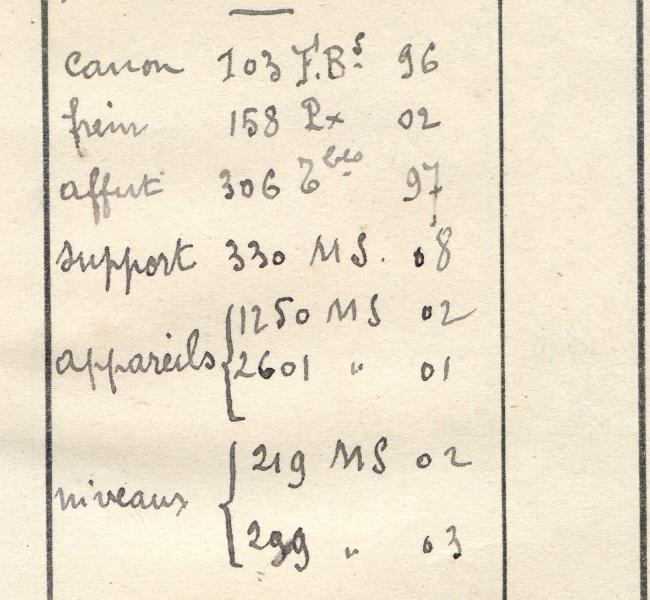 canon 103 F.Bs 96
frein 158 Px 02
affut 306 Tbes 97
support 330 MS. 08
appareils { 1250 MS 02
2601 " 01
niveaux { 219 MS 02
299 " 03